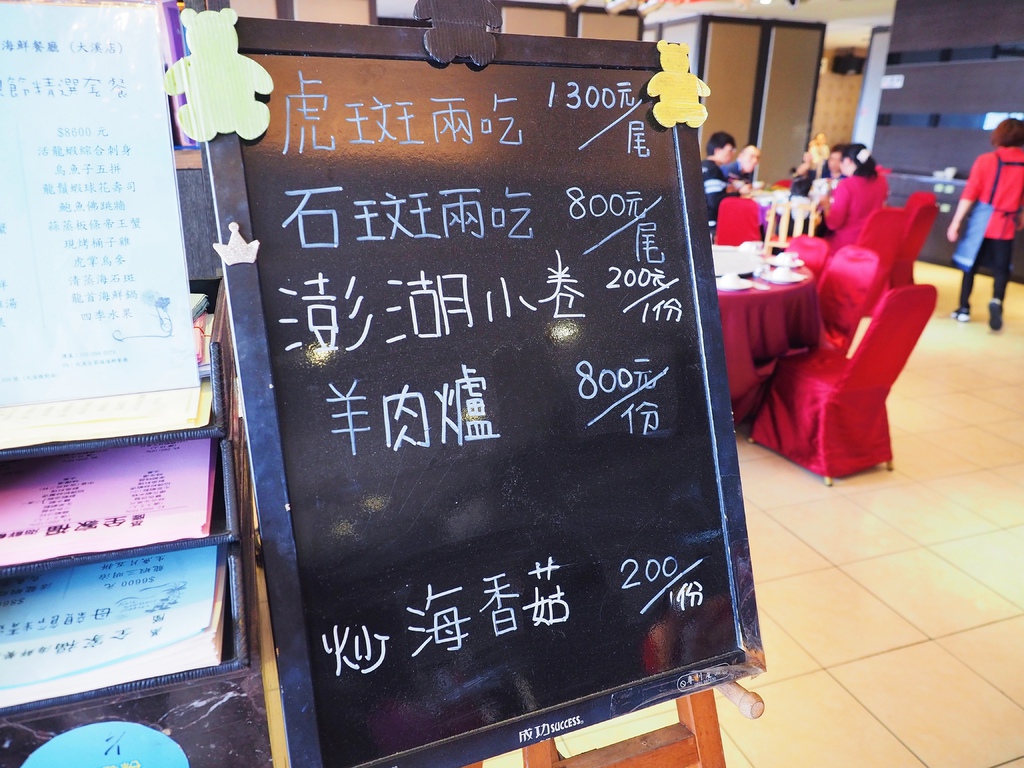 海鮮餐廳（大溪店）
節精選套餐
$8600元
活龍蝦綜合刺身
烏魚子五拼
龍鬚蝦球花壽司
鮑魚佛跳牆
蒜蒸板條帝王蟹
現烤桶子雞
虎掌烏參
清蒸海石斑
龍首海鮮鍋
四季水果
虎斑兩吃 1300元/尾
石斑兩吃 800元/尾
澎湖小卷 200元/份
羊肉爐 800元/份
炒海香菇 200/份
成功 SUCCESS
全家福海鮮
$6600元
全家福海鮮餐